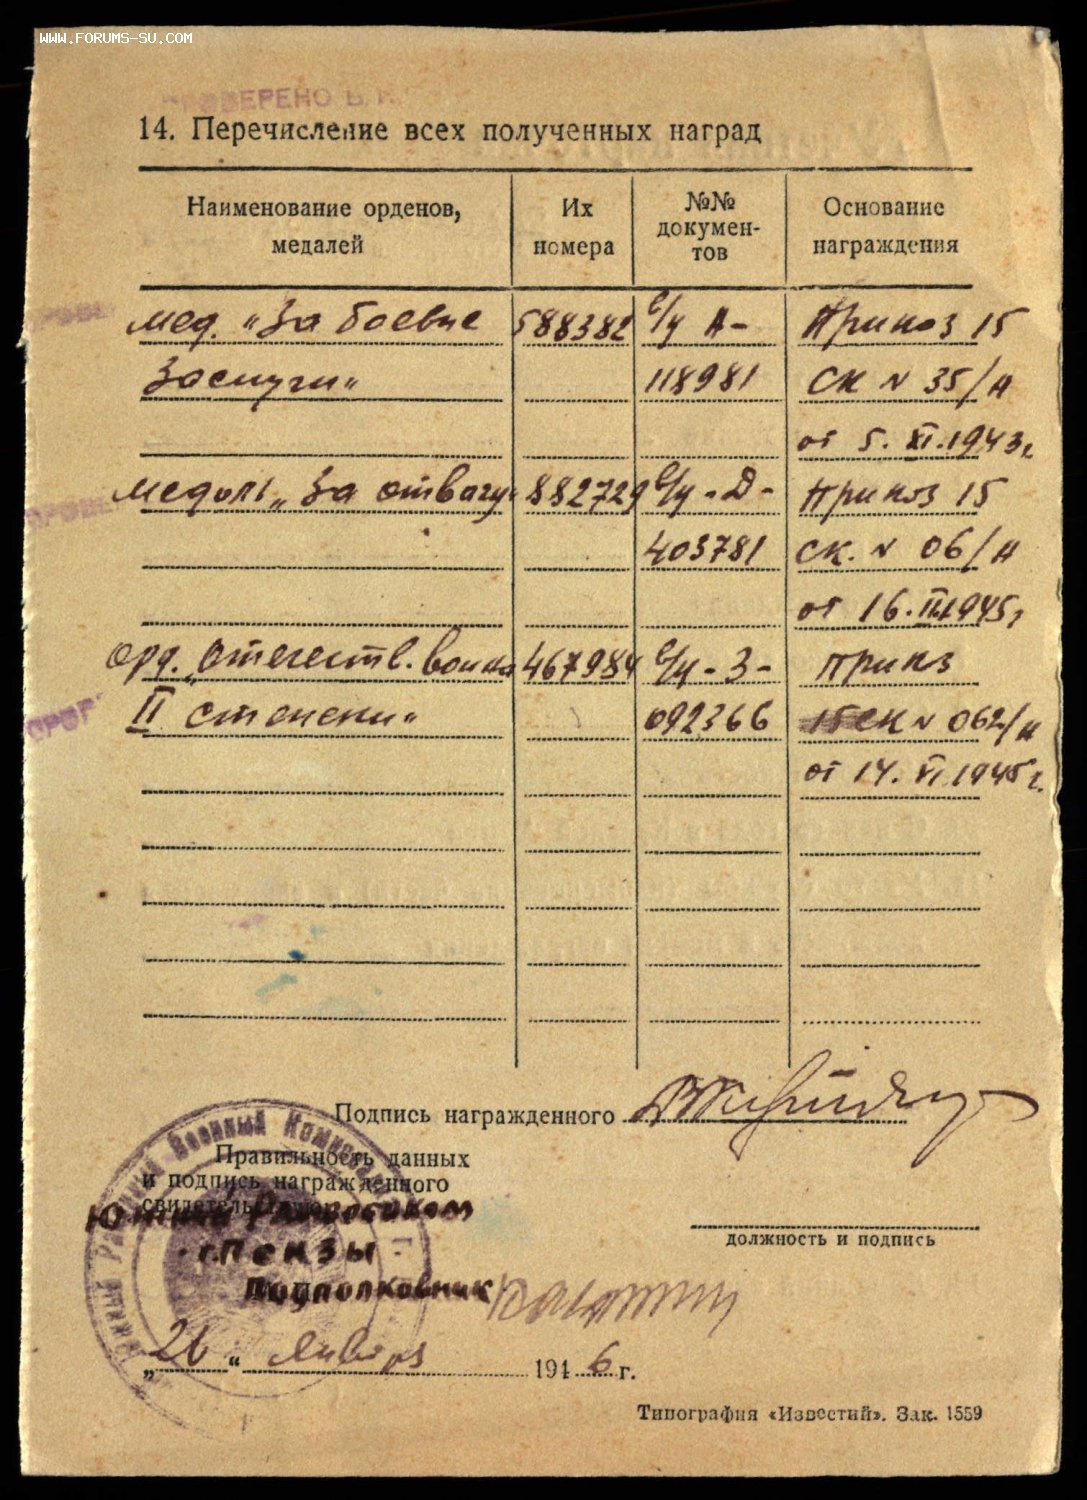 WWW.FORUMS-SU.COM
ПРОВЕРЕНО
14. Перечисление всех полученных наград
Наименование орденов, медалей
Их номера
№№ докумен-тов
Основание награждения
мед. „За боевые 588382 с/у А- Приказ 15
Заслуги“ 118981 СК N 35/н
от 5. XI.1943г.
медаль „За отвагу“ 882729 с/у-Д- Приказ 15
403781 СК. N 06/н
от 16. 1945г
орд. „Отечеств. война 467984 с/у-З- приказ
II степени“ 092366 15 СК N 062/н
от 14. VI.1945г.
Подпись награжденного
Правильность данных
и подпись награжденного
свидетельствую
Южный Райвоенком
г. Пензы
Подполковник
должность и подпись
„26“ Января 1946 г.
Типография «Известий». Зак. 1559